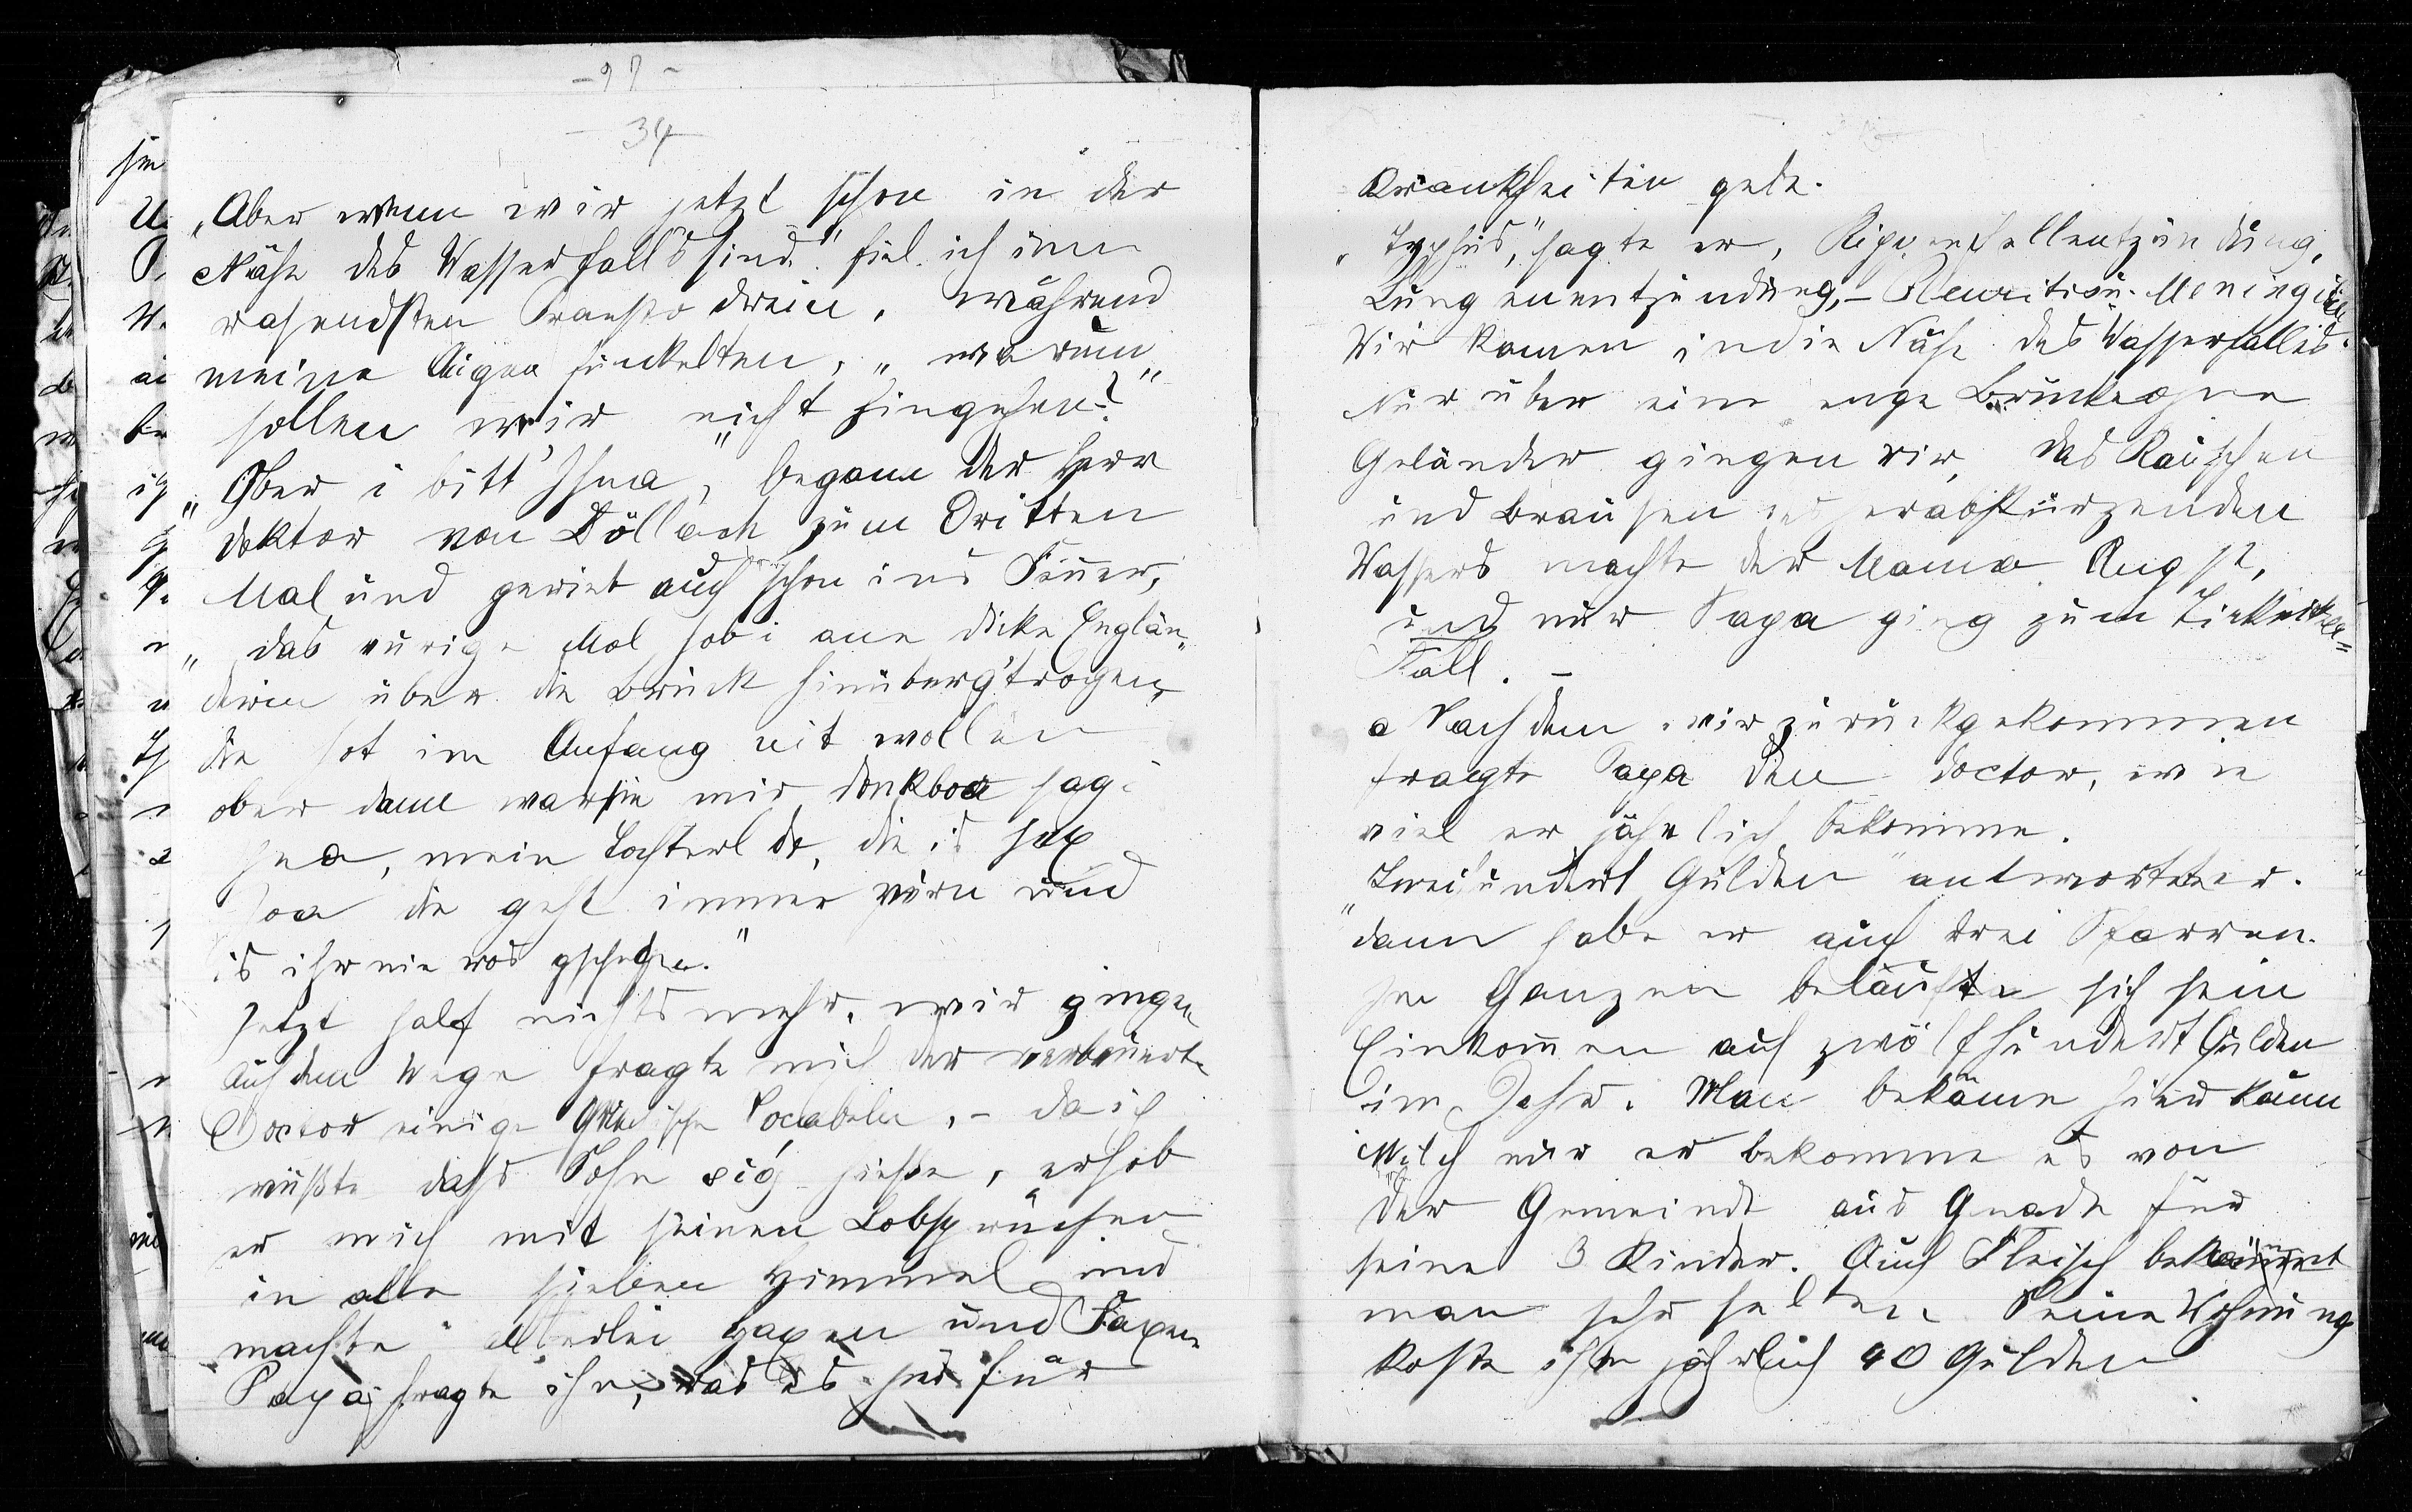 - 97 -
34
„Aber wenn wir jetzt schon in der
Nähe des Wasserfalls sind" fiel ich im
rasendsten drein, während
meine Augen funkelten, „warum
sollen wir nicht hingehen?"
„Ober i bitt' Ihna", begann der Herr
Doktor von Döllach zum Dritten
Mal und geriet auch schon ins Feuer,
„das vurige Mol hob i ane dicke Englän„
derin über die Bruck hinüberg'trogen,
die hot im Anfang nit wollen
ober dann war sie mir donkboa sag i
Ihna, mein Tochterl do, die is sex
Joa die geht immer vurn und
is ihr nie wos gschegn."
Jetzt half nichts mehr, wir gingen
Auf dem Wege fragte mich der verbauerte
Doctor einige Griechische Vocabeln, - da ich
wußte dass Sohn υἱός hieße, erhob
er mich mit seinen Lobsprüchen
in alle sieben Himmel und
machte allerlei Haxen und Faxen
Papa fragte ihn, was es hier für
Krankheiten gebe.
„Typhus," sagte er, Rippenfellentzündung,
Lungenentzündung, -
Wir kamen in die Nähe des Wasserfalles.
Nur über eine enge Brücke ohne
Geländer gingen wir, das Rauschen
und Brausen des herabstürzenden
Wassers machte der Mama Angst,
und nur Papa ging zum
Fall. -
Nachdem wir zurückgekommen
fragte Papa den Doctor, wie
viel er jährlich bekomme.
„Zweihundert Gulden" antwortete er.
dann habe er auch drei Pfarren.
Im Ganzen beläufte sich sein
Einkommen auf zwölfhundert Gulden
im Jahr. Man bekäme hier kaum
Milch nur er bekomme es von
der Gemeinde aus Gnade für
seine 3 Kinder. Auch Fleisch bekommt
man sehr selten Seine Wohnung
koste ihm jährlich 40 Gulden